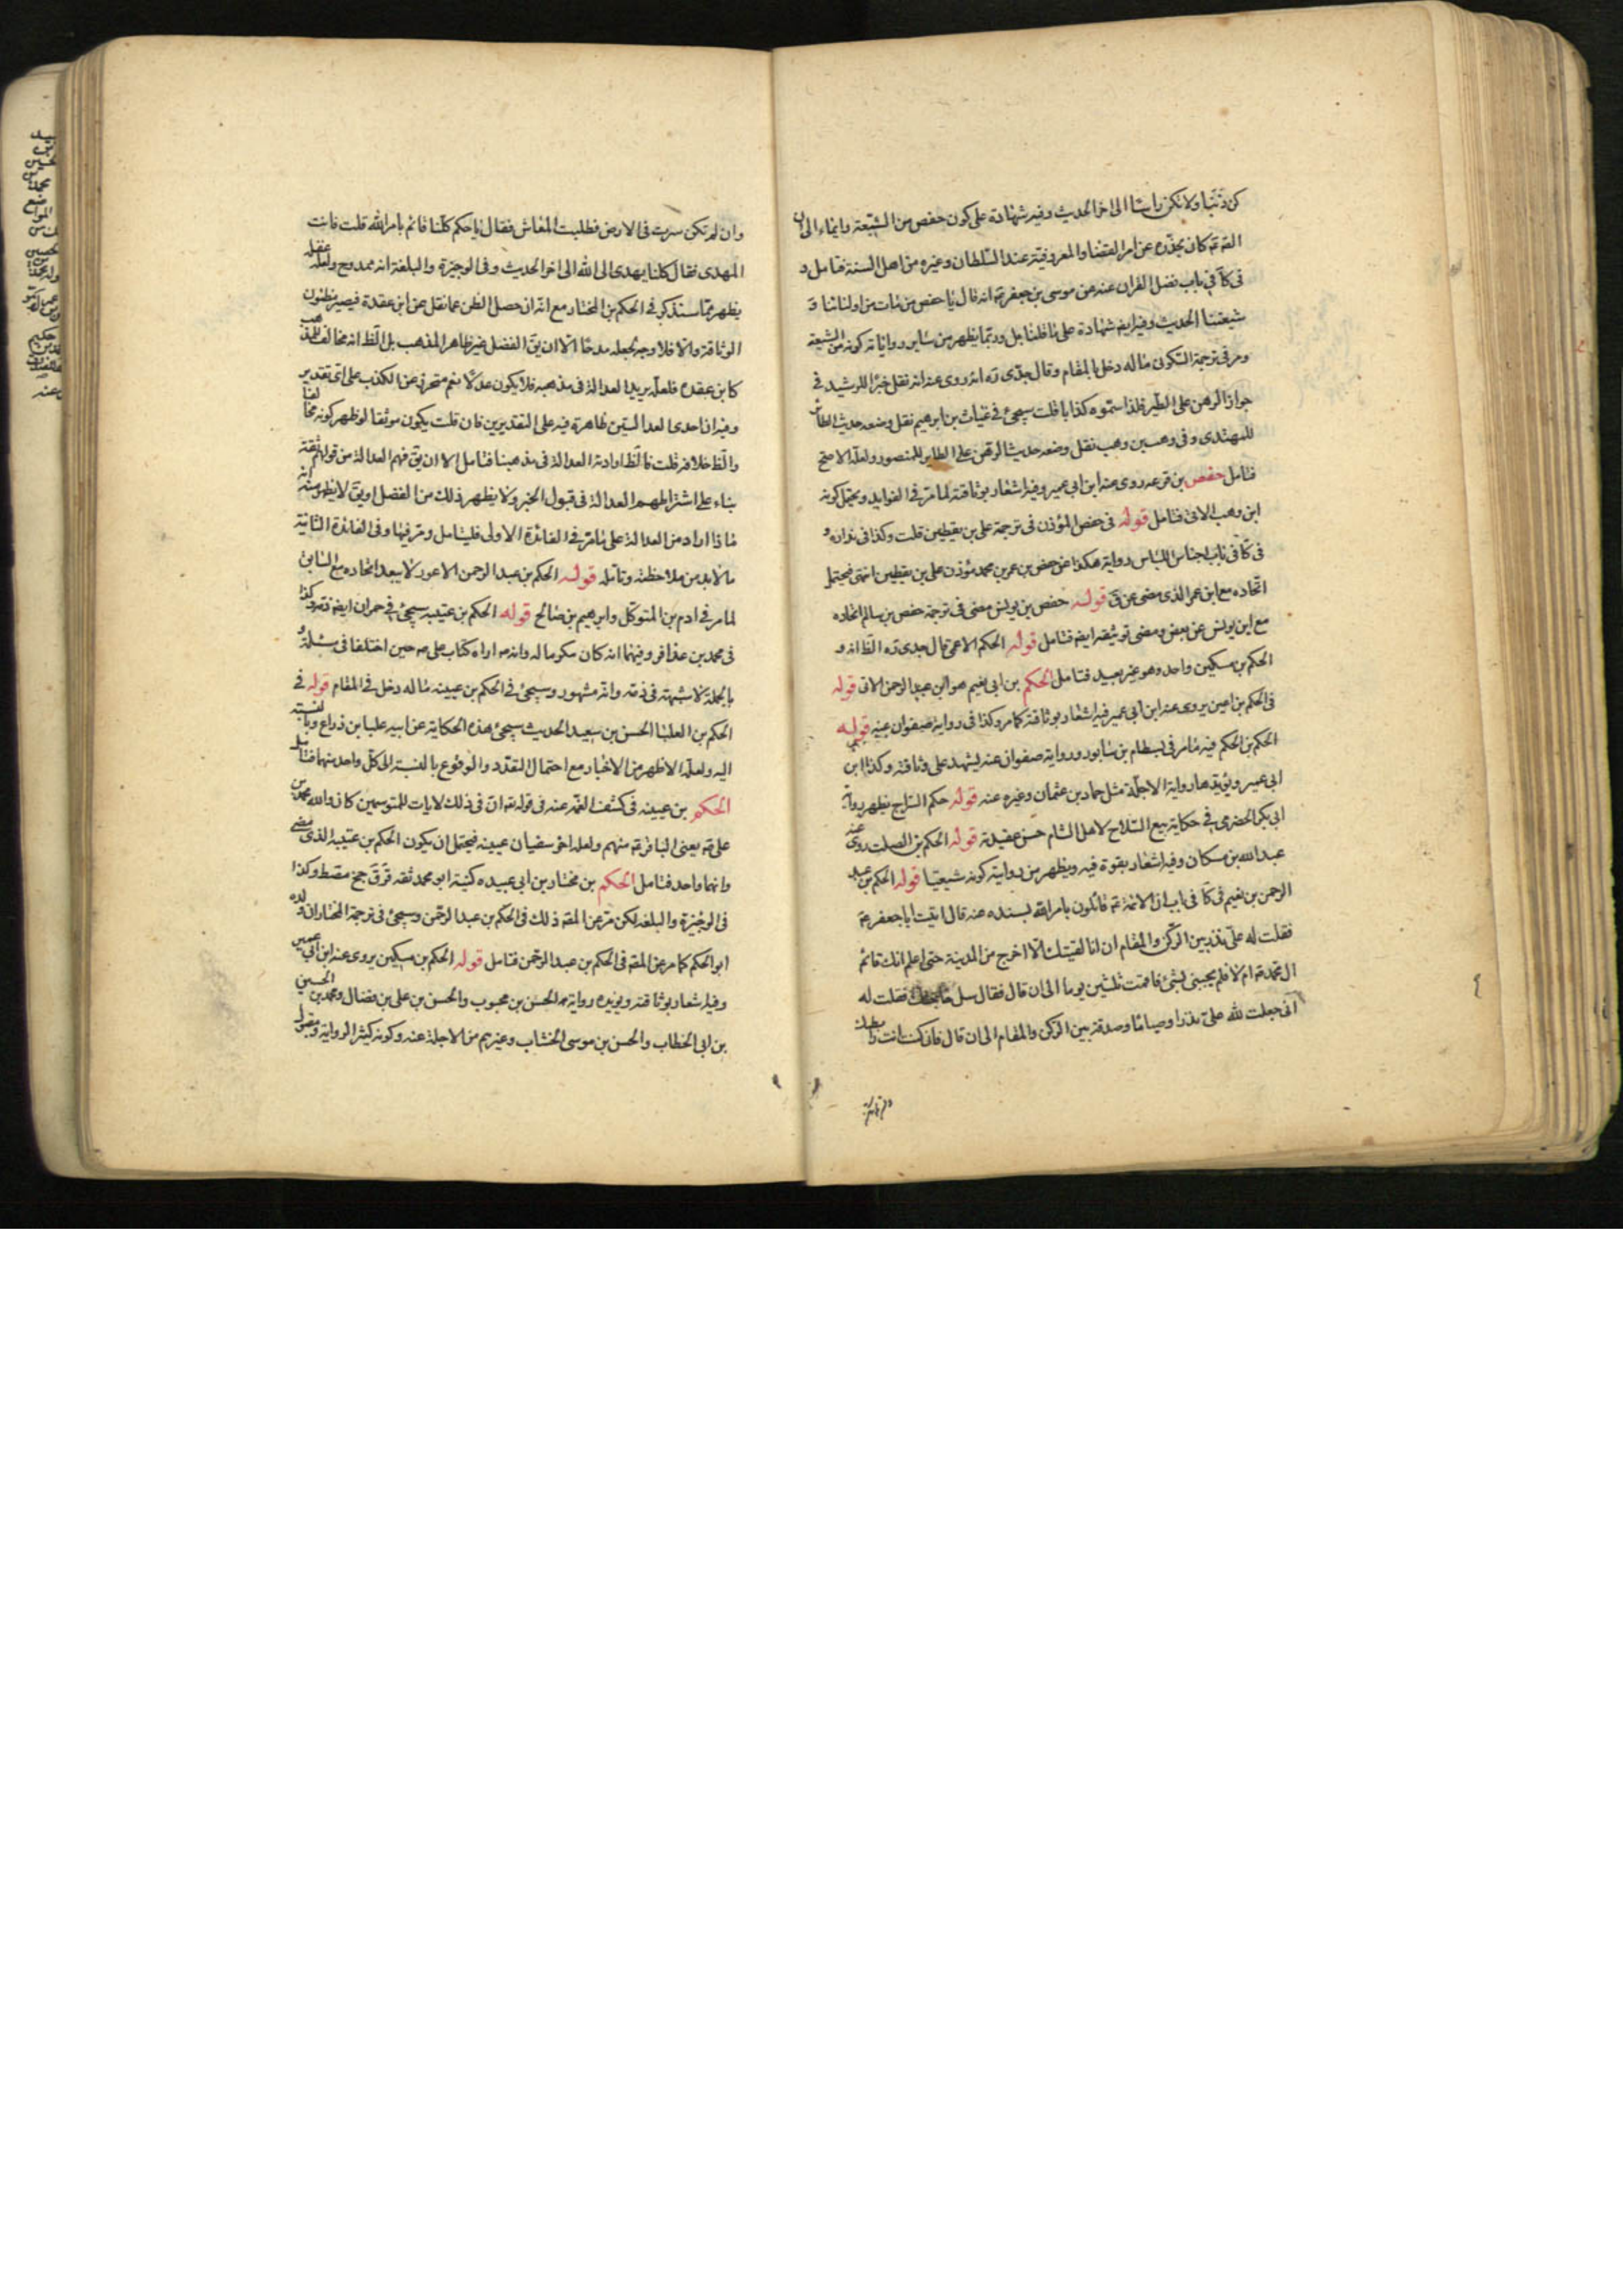 كن ذنبا ولا تكن راسا الى اخر الحديث وفيه شهادة على كون حفص من الشيعة وايماء الى ان
القه كان يحذره عن امر القضا والمعروفية عند السلطان وغيره من اهل السنة فتامل و
فى كا فى باب فضل القران عنه عن موسى بن جعفر ع انه قال يا حفص من مات من اوليائنا و
شيعتنا الحديث وفيه ايضا شهادة على ما قلنا بل وربما يظهر من ساير رواياته كونه من الشيعة
ومر فى ترجمة السكونى ماله دخل بالمقام وقال جدى ره انه روى عنه انه نقل خبرا للرشيد فى
جواز الرهن على الطير فلذا سموه كذابا قلت سيجئ فى غياث بن ابرهيم نقل وضعه حديث الطائر
للمهتدى وفى وهب بن وهب نقل وضعه حديث الرهن على الطاير للمنصور ولعله الاصح
فتامل حفص بن قرعه روى عنه ابن ابى عمير وفيه اشعار بوثاقته لما مر فى الفوايد ويحتمل كونه
ابن وهب الاتى فتامل قوله فى حفص المؤذن فى ترجمة على بن يقطين قلت وكذا فى نداره و
فى كا فى باب اجناس اللباس رواية هكذا عن حفص بن عمر بن محمد مؤذن على بن يقطين انتهى فيحتمل
اتحاده مع ابن عمر الذى مضى عن ق قوله حفص بن يونس مضى فى ترجمة حفص بن سالم اتحاده
مع ابن يونس عن بعض ومضى توثيقه ايضا فتامل قوله الحكم الاعمى قال جدى ره الظ انه و
الحكم بن مسكين واحد وهو غير بعيد فتامل الحكم بن ابى نعيم هو ابن عبد الرحمن الاتى قوله
فى الحكم بن ايمن يروى عنه ابن ابى عمير فيه اشعار بوثاقته كما مر وكذا فى رواية صفوان عنه قوله
الحكم بن الحكم فيه ما مر فى بسطام بن سابور ورواية صفوان عنه يشهد على وثاقته وكذا ابن
ابى عمير ويؤيدها رواية الاجلة مثل حماد بن عثمان وغيره عنه قوله حكم السراج يظهر من رواية
ابى بكر الحضرمى فى حكاية بيع السلاح لاهل الشام حسن عقيدته قوله الحكم بن الصلت روى عنه
عبد الله بن مسكان وفيه اشعار بقوة فيه ويظهر من روايته كونه شيعيا قوله الحكم بن عبد
الرحمن بن نعيم فى كا فى باب ان الائمة ع قائمون بامر الله بسنده عنه قال اتيت ابا جعفر ع
فقلت له على نذر بين الركن والمقام ان انا لقيتك الا اخرج من المدينة حتى اعلم انك قائم
ال محمد ام لا فلم يجبنى بشئ فاقمت ثلثين يوما الى ان قال فقال سل فقلت له
انى جعلت لله على نذرا وصياما وصدقة بين الركن والمقام الى ان قال فان كنت انت رابطتك
وان لم تكن سرت فى الارض فطلبت المعاش فقال يا حكم كلنا قائم بامر الله قلت فانت
المهدى فقال كلنا يهدى الى الله الى اخر الحديث وفى الوجيزة والبلغة انه ممدوح ولعله
يظهر مما سنذكر فى الحكم بن المختار مع انه ان حصل الظن مما نقل عن ابن عقدة فيصير مظنون
الوثاقة والا فلا وجه لجعله مدحا الا ان يق الفضل غير ظاهر المذهب بل الظ انه مخالف المذهب
كابن عقده فلعله يريد العدالة فى مذهبه فلا يكون عدلا نعم متحرز عن الكذب على اى تقدير
وفيه ان احدى العدالتين ظاهرة فيه على التقديرين فان قلت يكون موثقا لو ظهر كونه مخالفا
والظ خلافه قلت فالظ ارادته العدالة فى مذهبنا فتامل الا ان يق فهم العدالة من قولهم ثقة
بناء على اشتراطهم العدالة فى قبول الخبر ولا يظهر ذلك من الفضل او يق لا يظهر منه انه
ماذا اراد من العدالة على ما مر فى الفائدة الاولى فليتامل ومر فيها وفى الفائدة الثانية
ما لا بد من ملاحظته وتامله قوله الحكم بن عبد الرحمن الاعور لا يبعد اتحاده مع السابق
لما مر فى ادم بن المتوكل وابرهيم بن صالح قوله الحكم بن عتيبه سيجئ فى حمران ايضا ذمه وكذا
فى محمد بن عذافر وفيهما انه كان مكرما له وانه اراه كتاب على ع حين اختلفا فى مسئلة و
بالجملة لا شبهة فى ذمه وانه مشهور وسيجئ فى الحكم بن عيينه ماله دخل فى المقام قوله فى
الحكم بن العلبا الحسن بن سعيد الحديث سيجئ هذه الحكاية عن ابيه علبا بن ذراع
اليه ولعله الاظهر من الاخبار مع احتمال التعدد والوقوع بالنسبة الى كل واحد منهما فتامل
الحكم بن عيينه فى كشف الغمه عنه فى قوله تع ان فى ذلك لايات للمتوسمين كان والله محمد بن
على ع يعنى الباقر ع منهم ولعله اخو سفيان عيينه فيحتمل ان يكون الحكم بن عتيبه الذى مضى
وانهما واحد فتامل الحكم بن مختار بن ابى عبيده كنيته ابو محمد ثقه قر ق جخ فقط وكذا
فى الوجيزة والبلغه لكن مر عن المصه ذلك فى الحكم بن عبد الرحمن وسيجئ فى ترجمة المختار ان ولده
ابو الحكم كما مر عن المصه فى الحكم بن عبد الرحمن فتامل قوله الحكم بن مسكين يروى عنه ابن ابى عمير
وفيه اشعار بوثاقته ويؤيده رواية الحسن بن محبوب والحسن بن على بن فضال ومحمد بن الحسين
بن ابى الخطاب والحسن بن موسى الخشاب وغيرهم من الاجلة عنه وكونه كثير الرواية ومقبولها